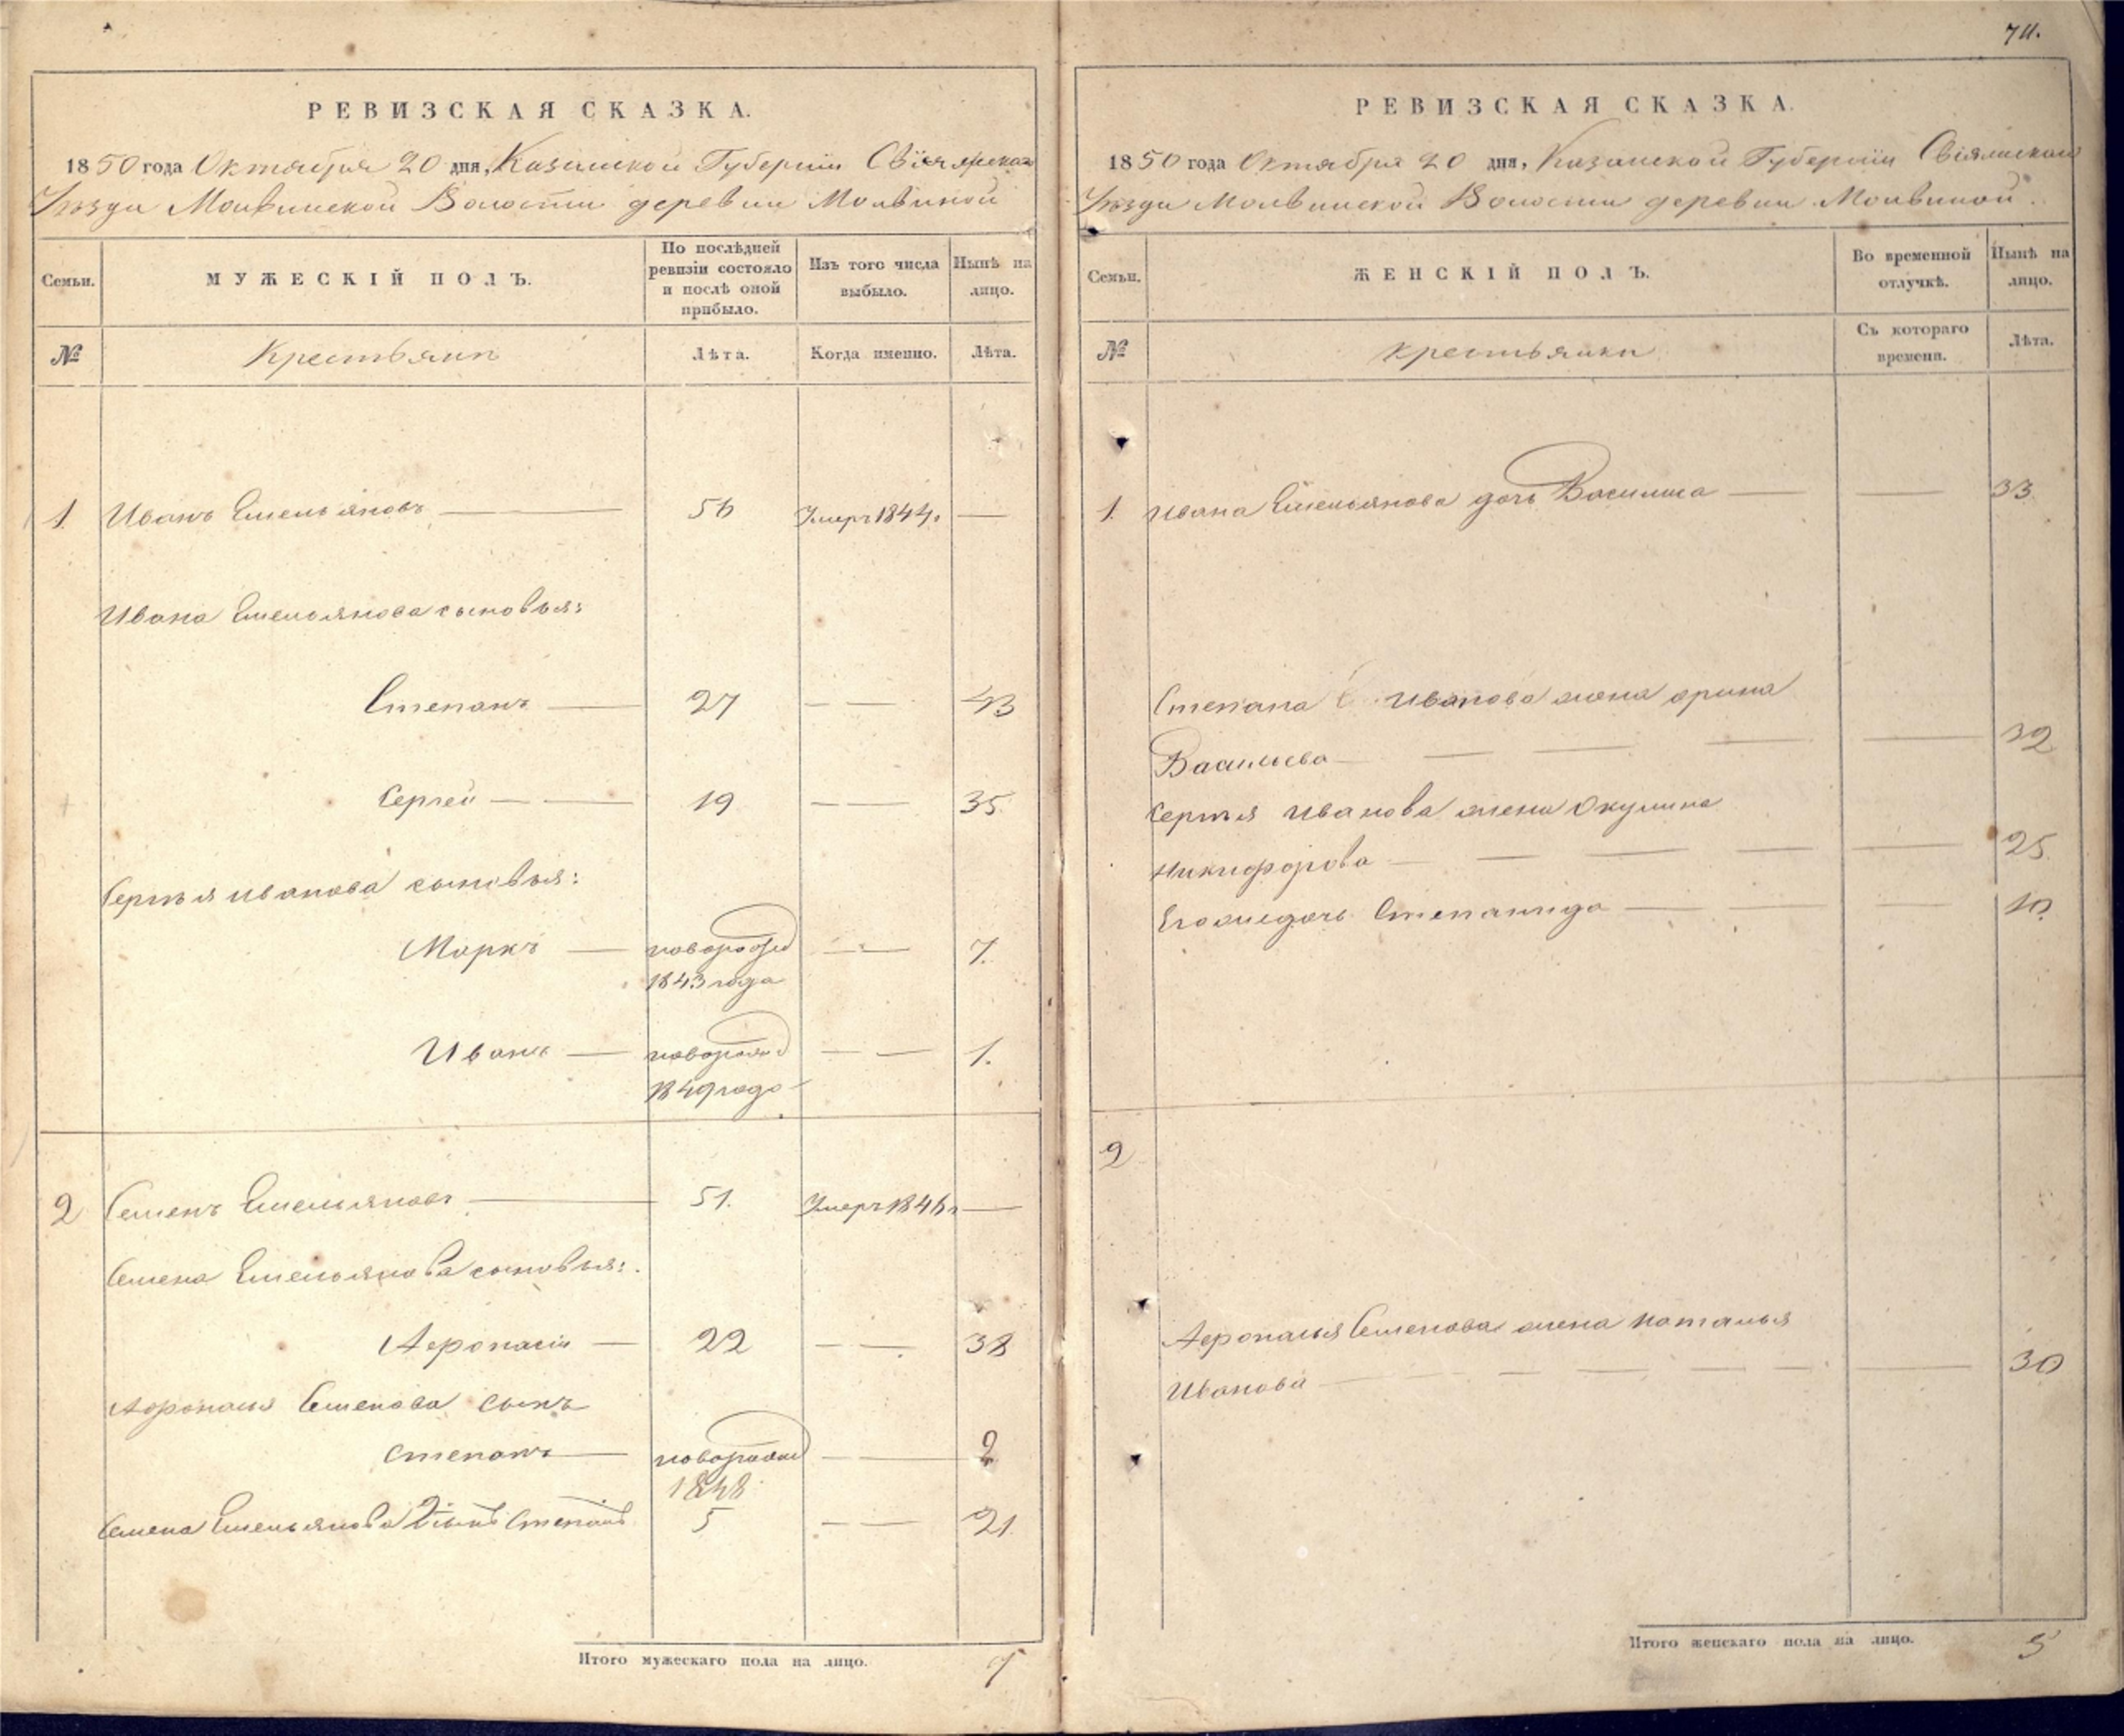 РЕВИЗСКАЯ СКАЗКА.
1850 года Октября 20 дня, Казанской Губернiи Свiяжскаго
Уѣзда Молвинской Волости деревни Молвиной
Семьи.
МУЖЕСКІЙ ПОЛЪ.
По послѣдней ревизіи состояло и послѣ оной прибыло.
Изъ того числа выбыло.
Нынѣ на лицо.
№
Крестьяни
Лѣта.
Когда именно.
Лѣта.
1. Иванъ Емельяновъ 56 Умеръ 1844 г
Ивана Емельянова сыновья:
Степанъ 27 43
Сергей 19 35
Сергѣя Иванова сыновья:
Маркъ новорожд 7.
1843 года
Иванъ новорожд 1.
1849 года
2 Семенъ Емельяновъ 51. Умеръ 1846 г
Семена Емельянова сыновья:
Афонасiй 22 38
Афонасья Семенова сынъ
Степанъ новорожд 2
1848
Семена Емельянова 2й сынъ Степанъ 5 21
Итого мужескаго пола на лицо. 7
711.
РЕВИЗСКАЯ СКАЗКА.
1850 года Октября 20 дня, Казанской Губернiи Свiяжскаго
Уѣзда Молвинской Волости деревни Молвиной.
Семьи.
ЖЕНСКІЙ ПОЛЪ.
Во временной отлучкѣ.
Нынѣ на лицо.
№
Крестьянки
Съ котораго времени.
Лѣта.
1. Ивана Емельянова дочь Василиса 33
Степана Иванова жена Арина
Васильева 32
Сергѣя Иванова жена Окулина
Никифорова 25
Его же дочь Степанида 10.
2
Афонасья Семенова жена Наталья
Иванова 30
Итого женскаго пола на лицо. 5